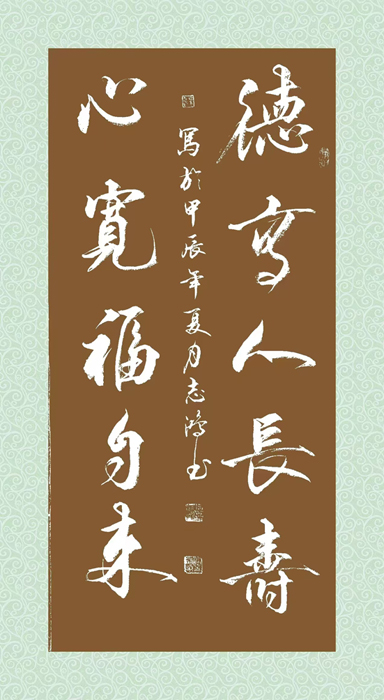 德高人長壽
心寬福自来
寫於甲辰年夏月志鴻书